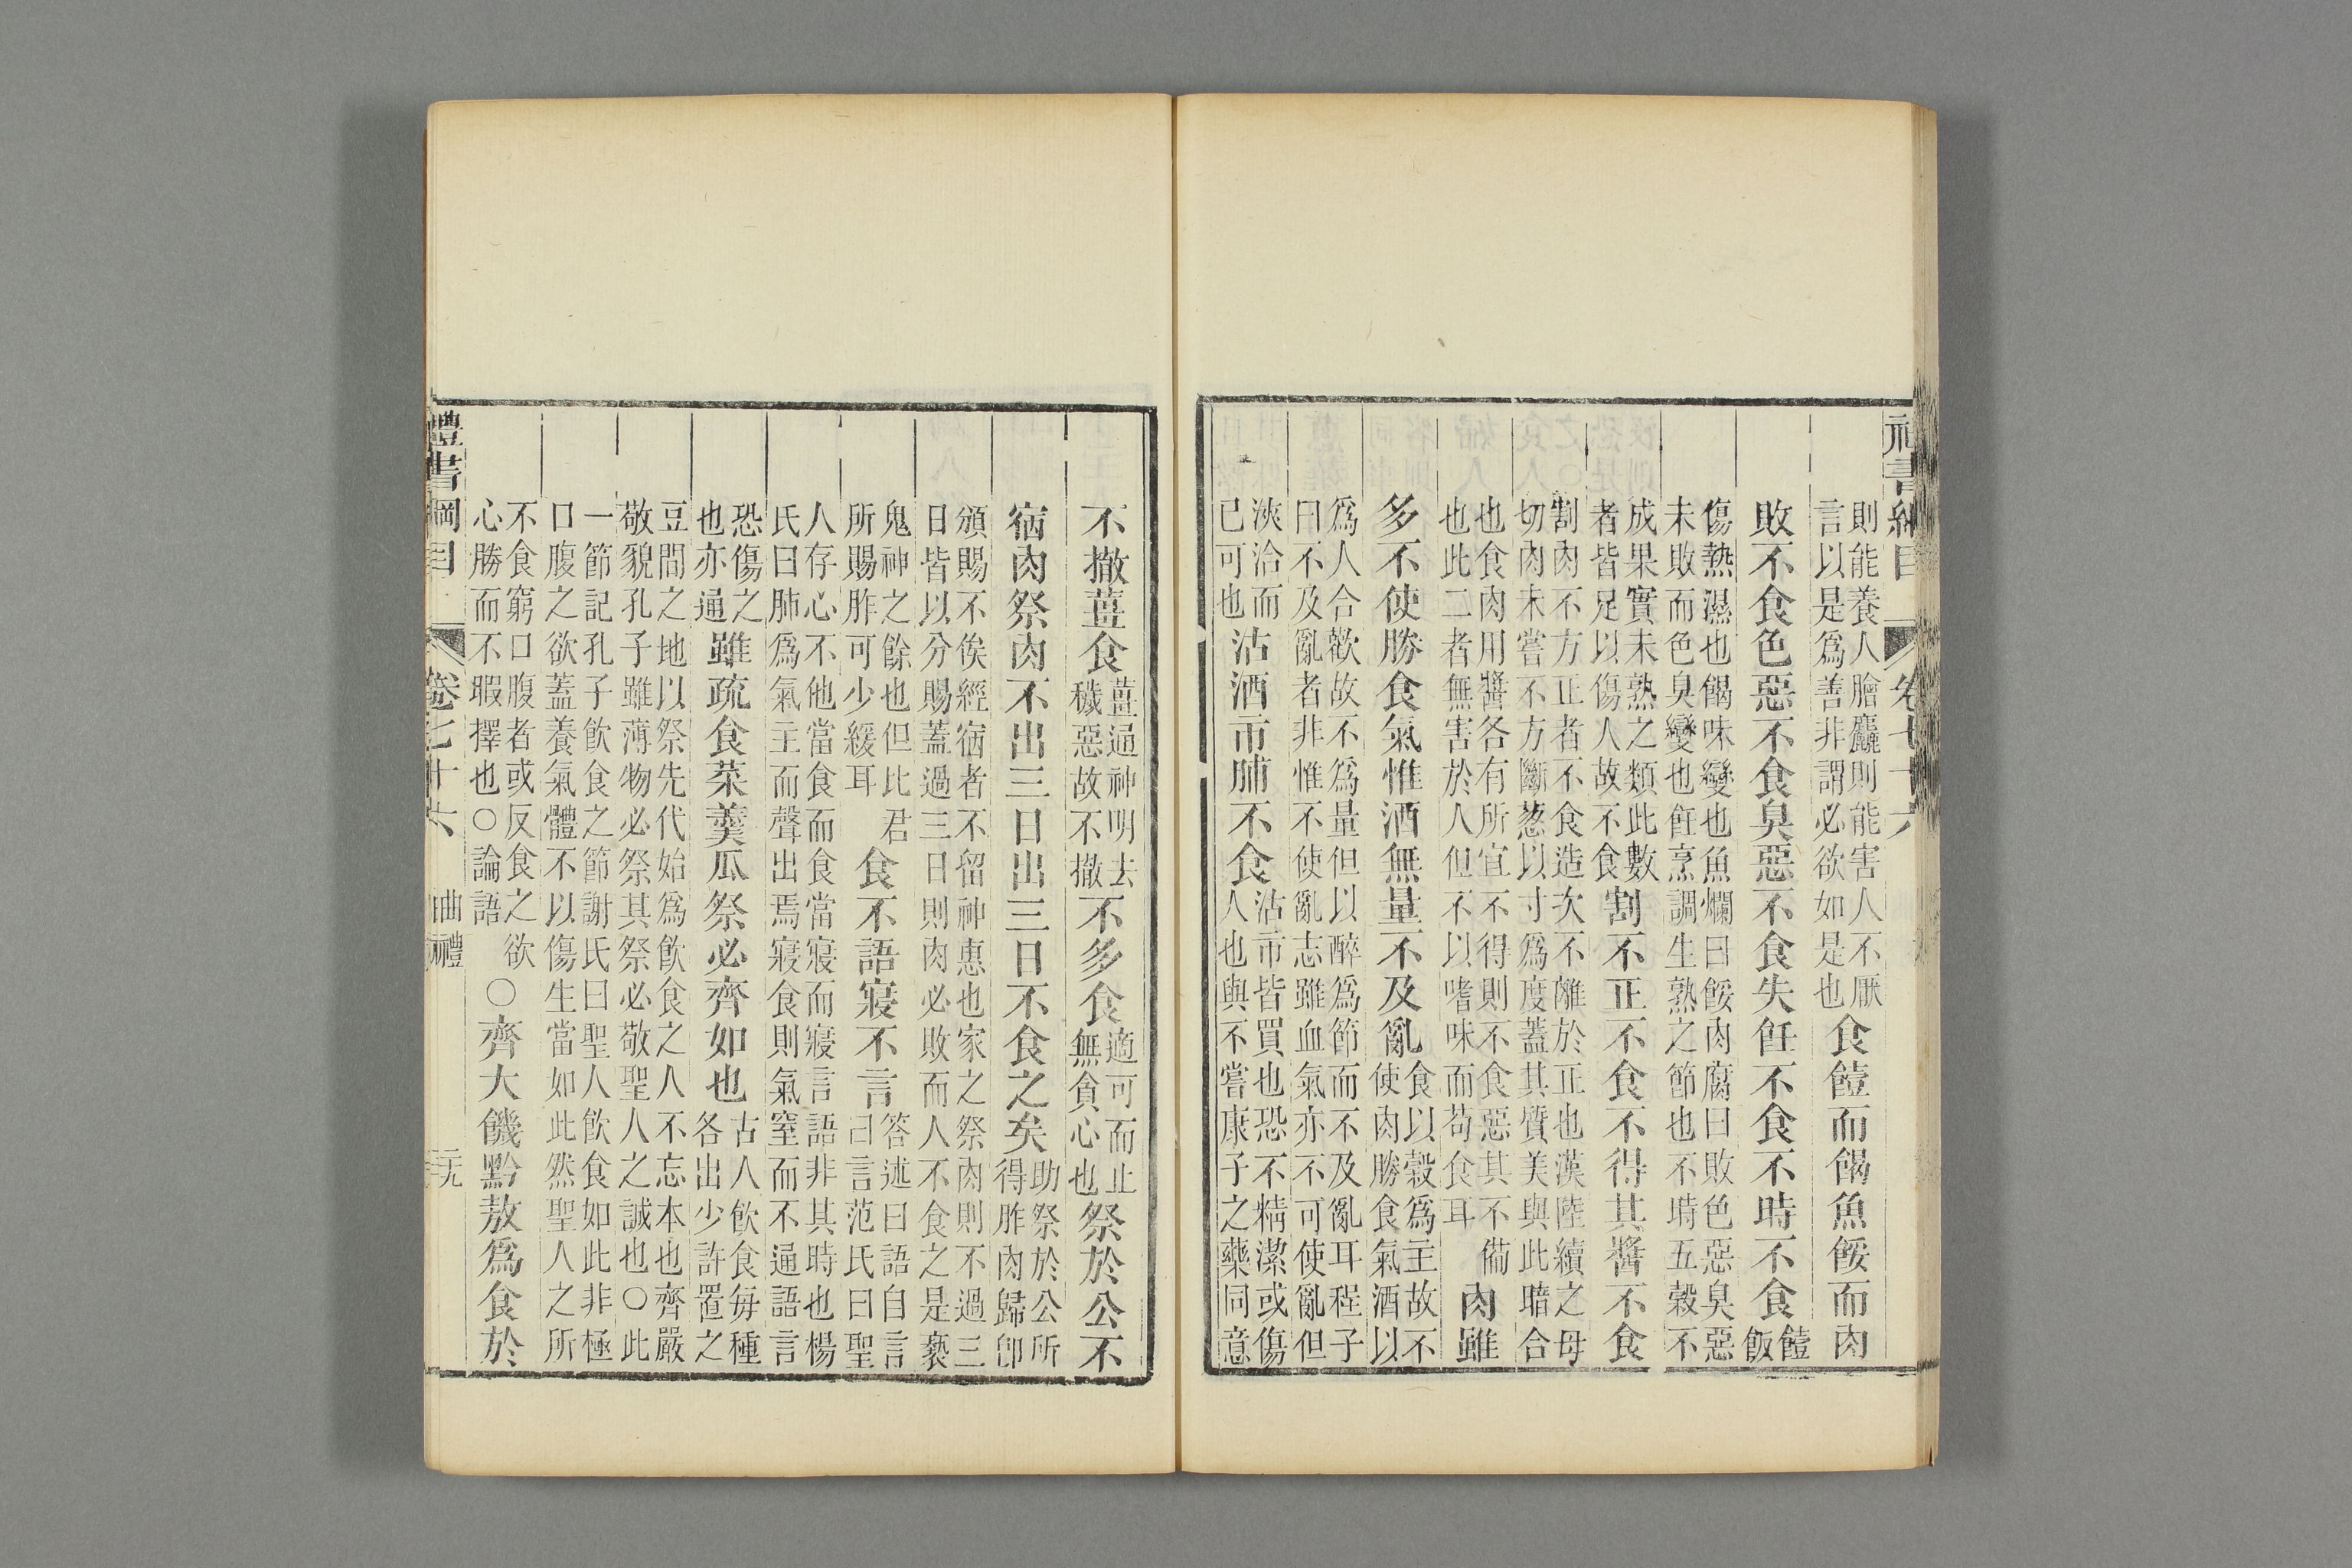 禮書綱目 卷七十六
則能養人膾麤則能害人不厭
言以是爲善非謂必欲如是也
食饐而餲魚餒而肉
敗不食色惡不食臭惡不食失飪不食不時不食
饐飯
傷熱濕也餲味變也魚爛曰餒肉腐曰敗色惡臭惡
未敗而色臭變也飪烹調生熟之節也不時五穀不
成果實未熟之類此數
者皆足以傷人故不食
割不正不食不得其醬不食
割肉不方正者不食造次不離於正也漢陸續之母
切肉未嘗不方斷葱以寸爲度蓋其質美與此暗合
也食肉用醬各有所宜不得則不食惡其不備
也此二者無害於人但不以嗜味而苟食耳
肉雖
多不使勝食氣惟酒無量不及亂
食以穀爲主故不
使肉勝食氣酒以
爲人合歡故不爲量但以醉爲節而不及亂耳程子
曰不及亂者非惟不使亂志雖血氣亦不可使亂但
浹洽而
已可也
沽酒市脯不食
沽市皆買也恐不精潔或傷
人也與不嘗康子之藥同意
不撤薑食
薑通神明去
穢惡故不撤
不多食
適可而止
無貪心也
祭於公不
宿肉祭肉不出三日出三日不食之矣
助祭於公所
得胙肉歸卽
頒賜不俟經宿者不留神惠也家之祭肉則不過三
日皆以分賜蓋過三日則肉必敗而人不食之是褻
鬼神之餘也但比君
所賜胙可少緩耳
食不語寢不言
答述曰語自言
曰言范氏曰聖
人存心不他當食而食當寢而寢言語非其時也楊
氏曰肺爲氣主而聲出焉寢食則氣窒而不通語言
恐傷之
也亦通
雖疏食菜羹瓜祭必齊如也
古人飲食每種
各出少許置之
豆間之地以祭先代始爲飲食之人不忘本也齊嚴
敬貌孔子雖薄物必祭其祭必敬聖人之誠也○此
一節記孔子飲食之節謝氏曰聖人飲食如此非極
口腹之欲蓋養氣體不以傷生當如此然聖人之所
不食窮口腹者或反食之欲
心勝而不暇擇也○論語
○齊大饑黔敖爲食於
禮書綱目 卷七十六 曲禮 二九